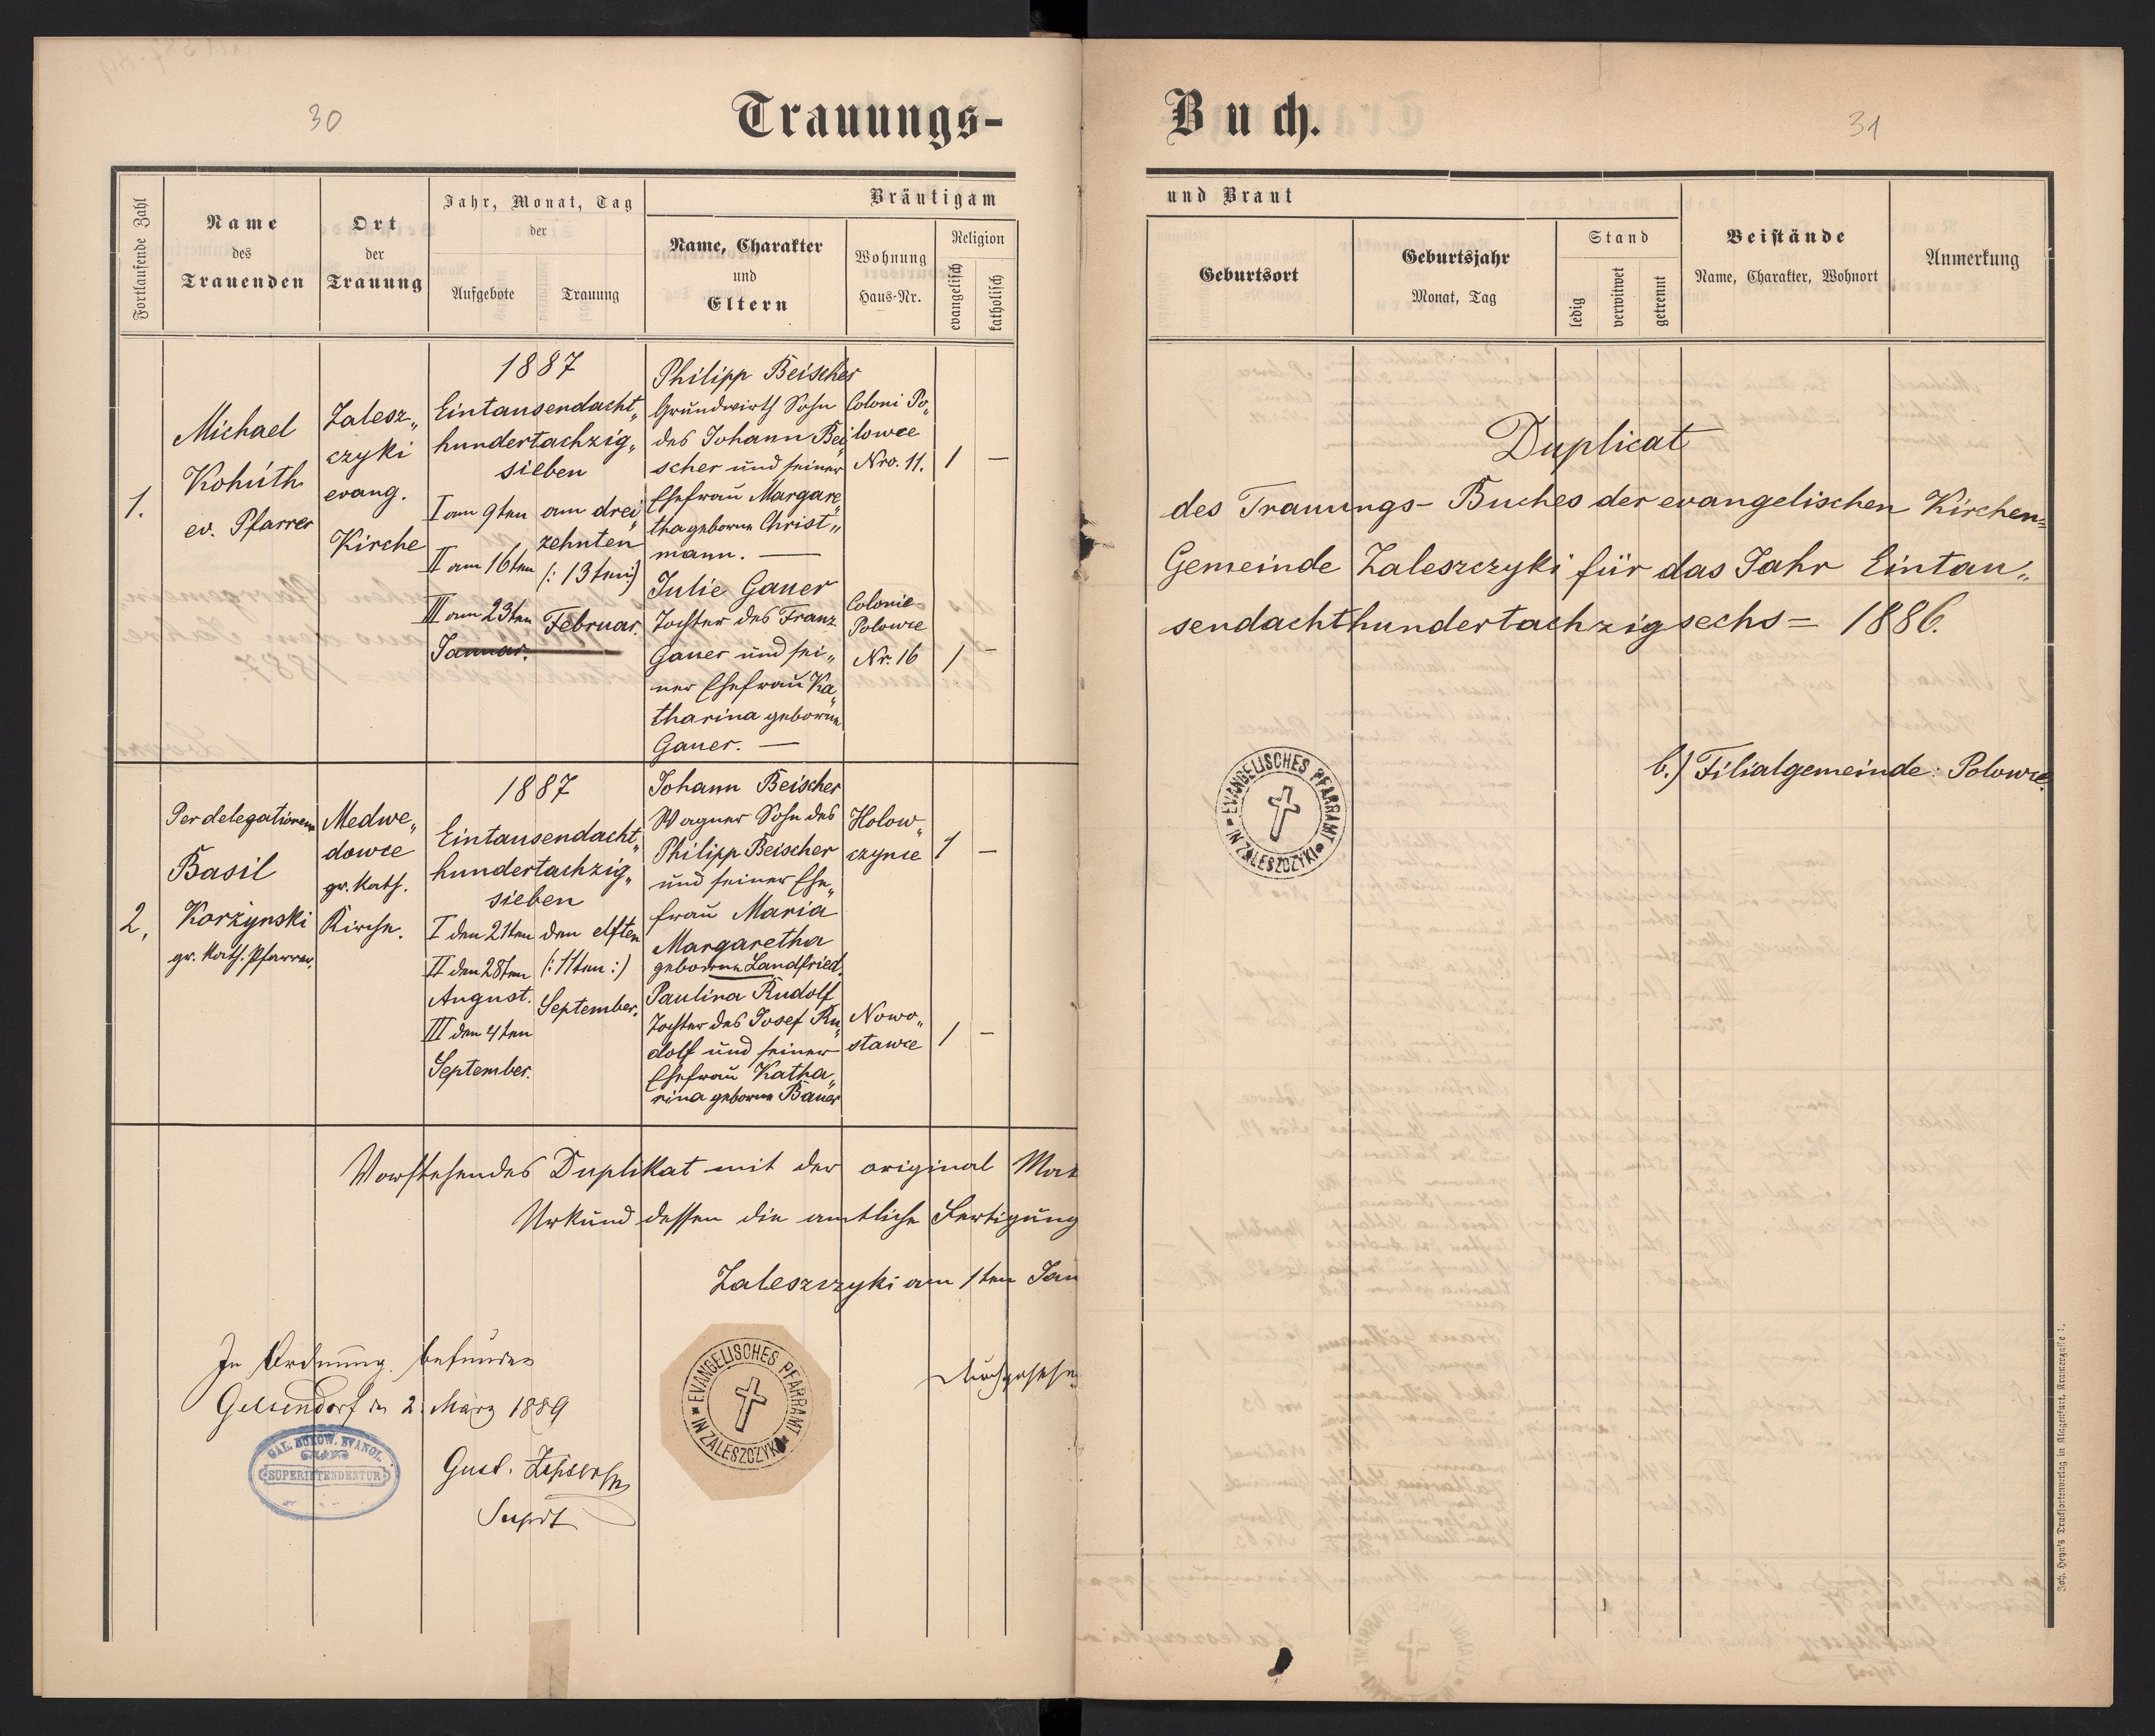 30
Trauungs-
Fortlaufende Zahl
Name
des
Trauenden
Ort
der
Trauung
Jahr, Monat, Tag
der
Aufgebote
Trauung
Bräutigam
Name, Charakter
und
Eltern
Wohnung
Haus-Nr.
Religion
evangelisch
katholisch
1.
Michael
Kohúth
ev. Pfarrer
Zalesz„
czyki
evang.
Kirche
1887
Eintausendacht„
hundertachzig„
sieben
I am 9ten
II am 16ten
III am 23ten
Januar.
am drei„
zehnten
(: 13ten:)
Februar.
Philipp Beischer
Grundwirth Sohn
des Johann Bei„
scher und seiner
Ehefrau Margare„
tha geborne Christ„
mann. —
Coloni Po„
lowce
Nro. 11.
1 —
Julie Gauer
Tochter des Franz
Gauer und sei„
ner Ehefrau Ka„
tharina geborne
Gauer. —
Colonie
Polowce
Nr. 16
1 —
2,
Per delegationem
Basil
Korżynski
gr. kath. Pfarrer.
Medwe„
dowce
gr. kath.
Kirche.
1887
Eintausendacht„
hundertachzig„
sieben
I den 21ten
II den 28ten
August.
III den 4ten
September.
den elften
(: 11ten :)
September.
Johann Beischer
Wagner Sohn des
Philipp Beischer
und seiner Ehe„
frau Maria
Margaretha
geborne Landfried.
Holow„
czynce
1 —
Paulina Rudolf
Tochter des Josef Ru„
dolf und seiner
Ehefrau Katha„
rina geborne Bauer
Nowo„
stawce
1 —
Vorstehendes Duplikat mit der original Mat
Urkund dessen die amtliche Fertigung
Zaleszczyki am 1ten Jan
In Ordnung befunden
Gelsendorf den 2. März 1889
Supdt
GAL. BUKOW. EVANGL.
SUPERINTENDENTUR
EVANGELISCHES PFARRAMT
IN ZALESZCZYKI
durchgesehen
Buch.
31
und Braut
Geburtsort
Geburtsjahr
Monat, Tag
Stand
ledig
verwitwet
getrennt
Beistände
Name, Charakter, Wohnort
Anmerkung
Duplicat
des Trauungs- Buches der evangelischen Kirchen=
Gemeinde Zaleszczyki für das Jahr Eintau„
sendachthundertachzigsechs = 1886.
b.) Filialgemeinde: Polowce.
EVANGELISCHES PFARRAMT
IN ZALESZCZYKI
Joh. Heyn's Drucksortenverlag in Klagenfurt, Kramergasse